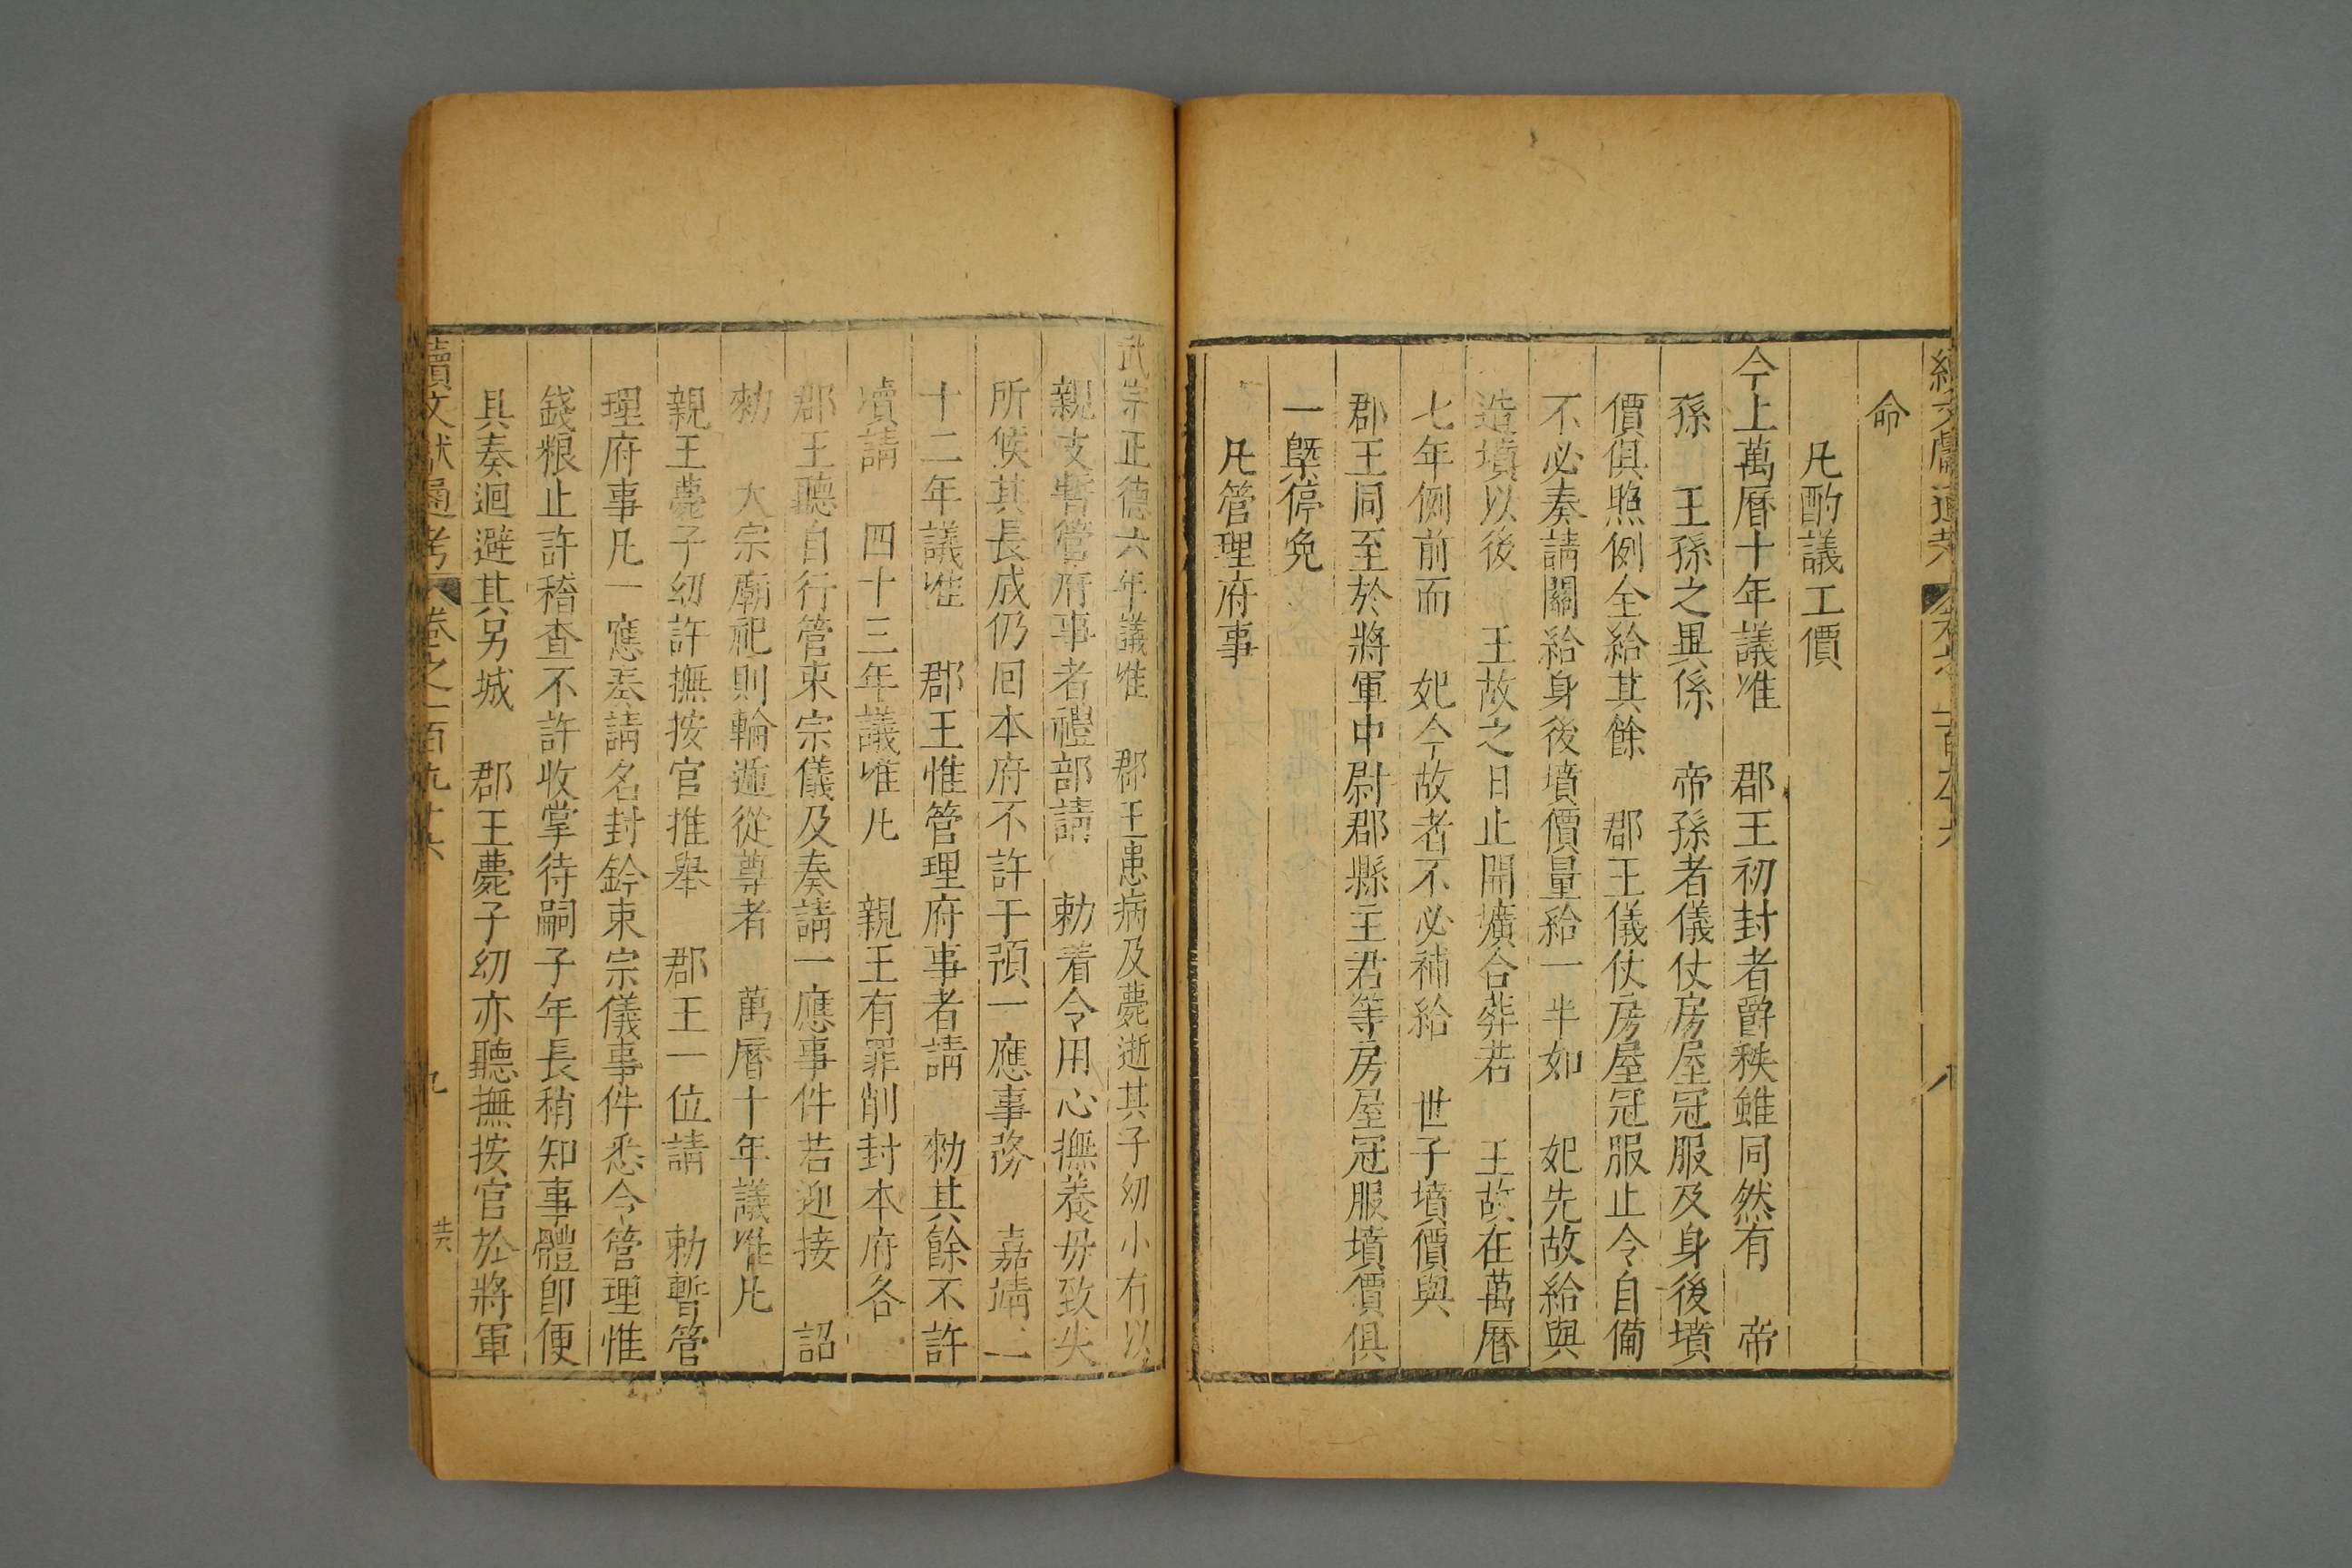 命
凡酌議工價
今上萬曆十年議准 郡王初封者爵秩雖同然有 帝
孫 王孫之異係 帝孫者儀仗房屋冠服及身後墳
價俱照例全給其餘 郡王儀仗房屋冠服止令自備
不必奏請關給身後墳價量給一半如 妃先故給與
造墳以後 王故之日止開壙合葬若 王故在萬曆
七年例前而 妃今故者不必補給 世子墳價與
郡王同至於將軍中尉郡縣主君等房屋冠服墳價俱
一槩停免
凡管理府事
武宗正德六年議准 郡王患病及薨逝其子幼小有以
親支暫管府事者禮部請 勅着令用心撫養毋致失
所候其長成仍回本府不許干預一應事務 嘉靖二
十二年議准 郡王惟管理府事者請 勅其餘不許
凟請 四十三年議准凡 親王有罪削封本府各
郡王聽自行管束宗儀及奏請一應事件若迎接 詔
勅 大宗廟祀則輪遞從尊者 萬曆十年議准凡
親王薨子幼許撫按官推舉 郡王一位請 勅暫管
理府事凡一應奏請名封鈐束宗儀事件悉令管理惟
錢粮止許稽查不許收掌待嗣子年長稍知事體卽便
具奏迴避其另城 郡王薨子幼亦聽撫按官於將軍
續文獻通考 卷之一百九十六 九